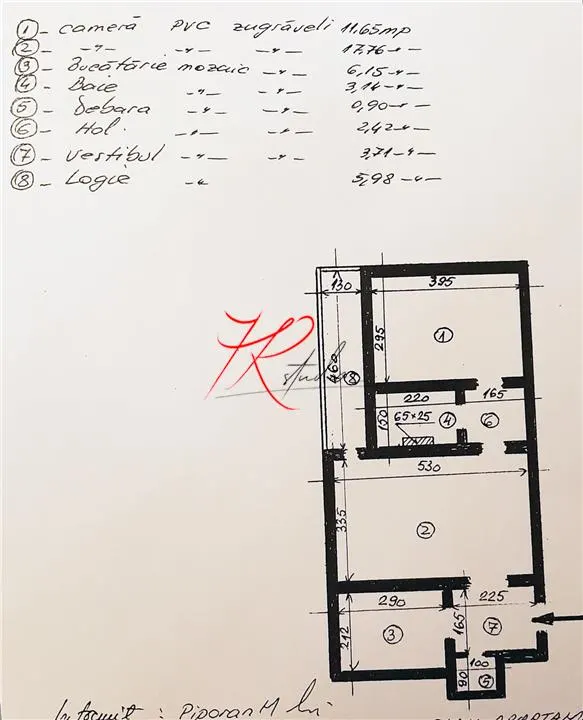 ① - cameră PVC zugrăveli 11.65 mp
② - -"- -"- -"- 17,76 -"-
③ - Bucătărie mozaic -"- 6,15 -"-
④ - Baie -"- -"- 3,14 -"-
⑤ - Debara -"- -"- 0,90 -"-
⑥ - Hol. -"- -"- 2,42 -"-
⑦ - Vestibul -"- -"- 3,71 -"-
⑧ - Logie -"- 5,98 -"-
130 395
295
①
460
studio
⑧
220 165
65×25
150
④
⑥
530
335
②
290 225
212
③
165
⑦
100
90
⑤
Intocmit : Piporan M